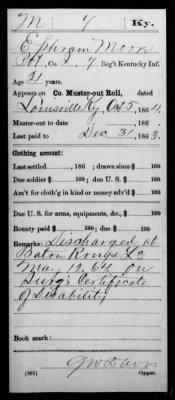 M 7 Ky.
Ephram Moore
Pvt., Co. , 7 Reg't Kentucky Inf.
Age 21 years.
Appears on Co. Muster-out Roll, dated
Louisville Ky, Oct 5, 1864.
Muster-out to date , 186 .
Last paid to Dec 31, 1863.
Clothing account:
Last settled , 186 ; drawn since $ 100
Due soldier $ 100; due U. S. $ 100
Am't for cloth'g in kind or money adv'd $ 100
Due U. S. for arms, equipments, &c., $ 100
Bounty paid $ 100; due $ 100
Remarks: Discharged at
Baton Rouge La
May 12, 64 on
Surg's Certificate
of Disability
Book mark:
(861) G W Davis
Copyist.